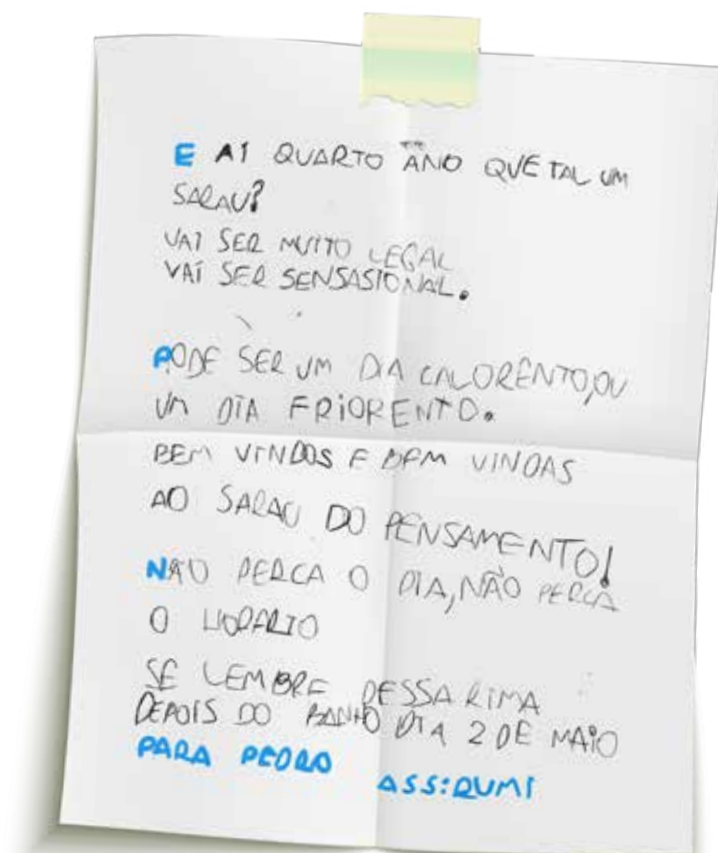 E AÍ QUARTO ANO QUE TAL UM
SARAU?
VAI SER MUITO LEGAL
VAI SER SENSASIONAL.
PODE SER UM DIA CALORENTO, OU
UM DIA FRIORENTO.
BEM VINDOS E BEM VINDAS
AO SARAU DO PENSAMENTO!
NÃO PERCA O DIA, NÃO PERCA
O HORARIO
SE LEMBRE DESSA RIMA
DEPOIS DO BANHO DIA 2 DE MAIO
PARA PEDRO ASS: RUMI